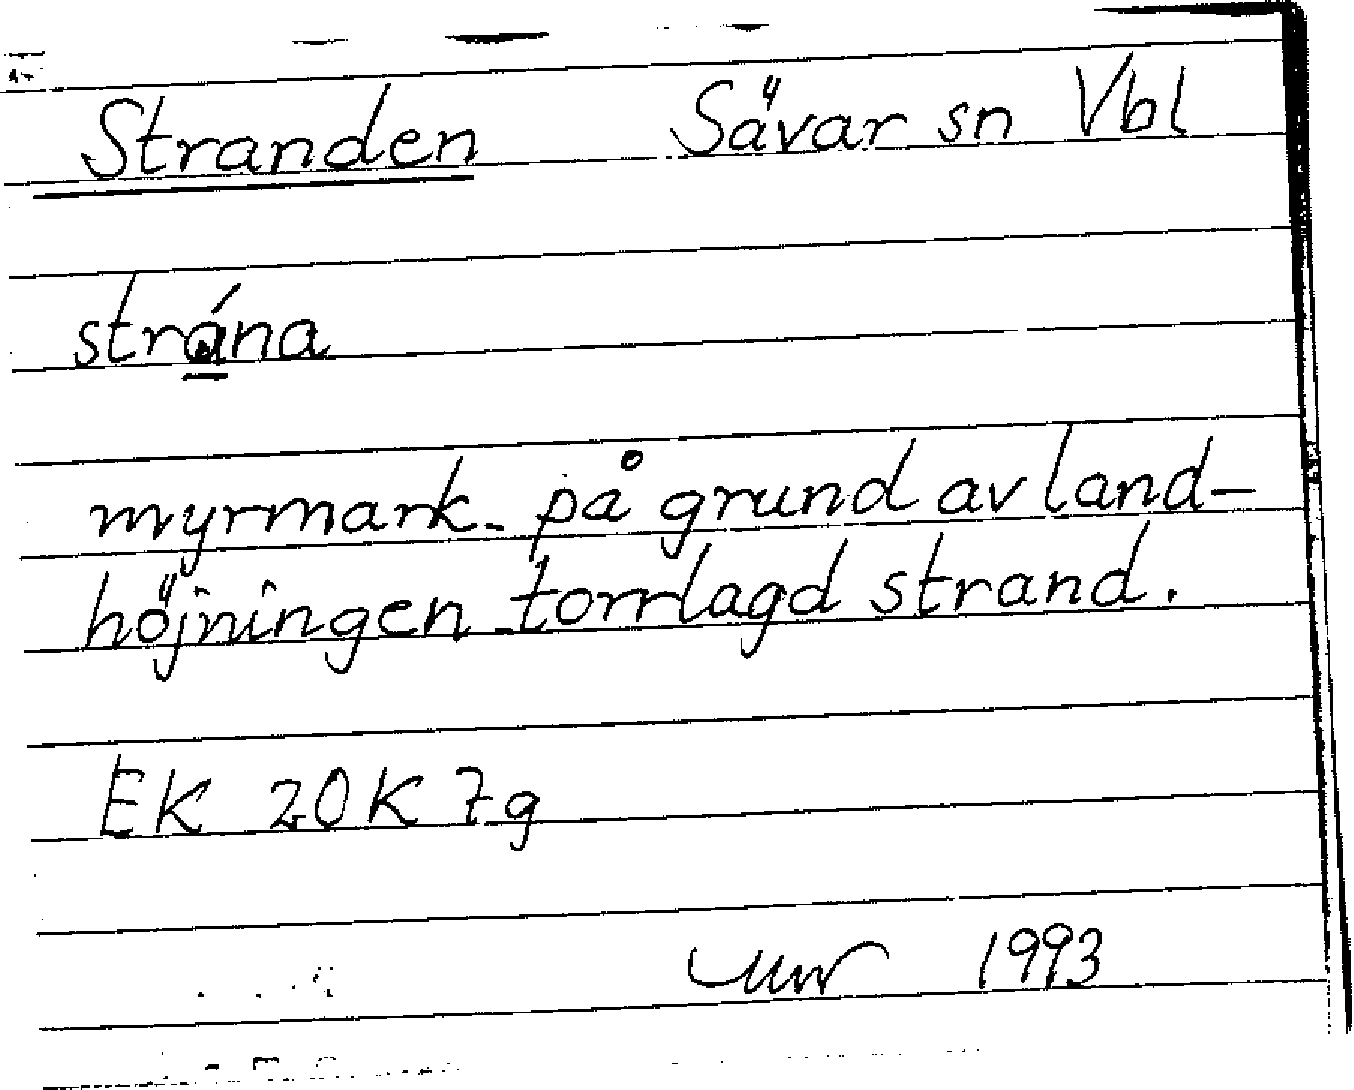 Stranden Sävar sn Vbl
strána
myrmark. på grund av land-
höjningen torrlagd strand.
EK 20K 7g
1993